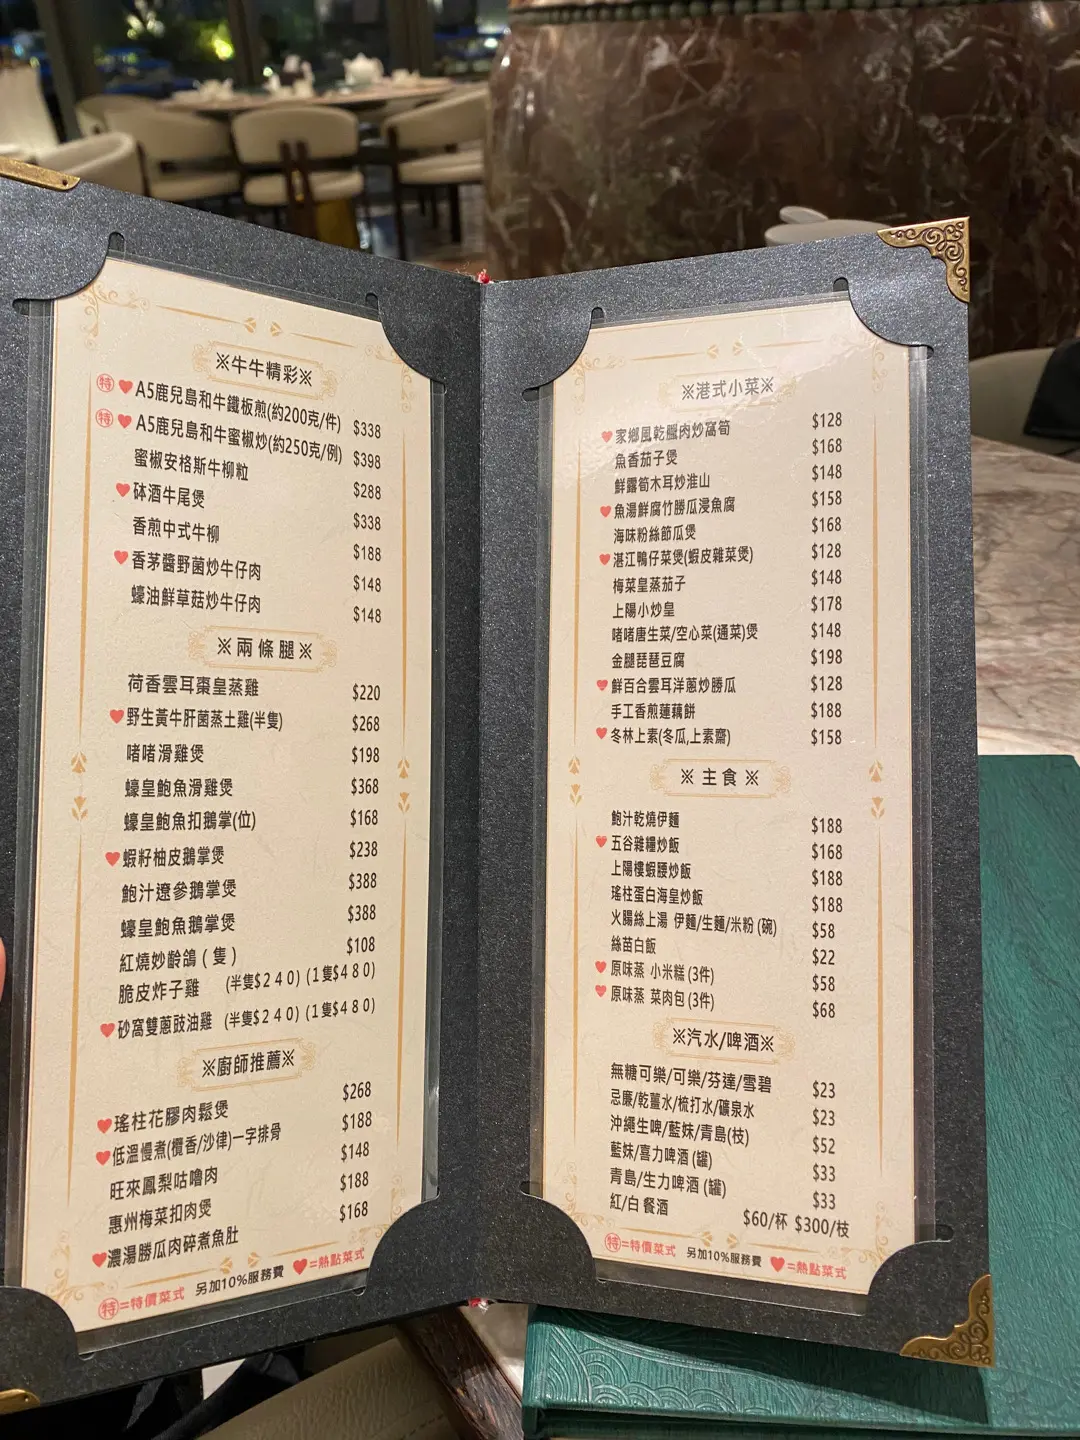 ※牛牛精彩※
特 ♥ A5鹿兒島和牛鐵板煎(約200克/件) $338
特 ♥ A5鹿兒島和牛蜜椒炒(約250克/例) $398
蜜椒安格斯牛柳粒 $288
♥ 砵酒牛尾煲 $338
香煎中式牛柳 $188
♥ 香茅醬野菌炒牛仔肉 $148
蠔油鮮草菇炒牛仔肉 $148
※兩條腿※
荷香雲耳棗皇蒸雞 $220
♥ 野生黃牛肝菌蒸土雞(半隻) $268
啫啫滑雞煲 $198
蠔皇鮑魚滑雞煲 $368
蠔皇鮑魚扣鵝掌(位) $168
♥ 蝦籽柚皮鵝掌煲 $238
鮑汁遼參鵝掌煲 $388
蠔皇鮑魚鵝掌煲 $388
紅燒妙齡鴿(隻) $108
脆皮炸子雞 (半隻$240) (1隻$480)
♥ 砂窩雙蔥豉油雞 (半隻$240) (1隻$480)
※廚師推薦※
♥ 瑤柱花膠肉鬆煲 $268
♥ 低溫慢煮(欖香/沙律)一字排骨 $188
旺來鳳梨咕嚕肉 $148
惠州梅菜扣肉煲 $188
♥ 濃湯勝瓜肉碎煮魚肚 $168
特=特價菜式 另加10%服務費 ♥=熱點菜式
※港式小菜※
♥ 家鄉風乾臘肉炒窩筍 $128
魚香茄子煲 $168
鮮露筍木耳炒淮山 $148
♥ 魚湯鮮腐竹勝瓜浸魚腐 $158
海味粉絲節瓜煲 $168
♥ 湛江鴨仔菜煲(蝦皮雜菜煲) $128
梅菜皇蒸茄子 $148
上陽小炒皇 $178
啫啫唐生菜/空心菜(通菜)煲 $148
金腿琵琶豆腐 $198
♥ 鮮百合雲耳洋蔥炒勝瓜 $128
手工香煎蓮藕餅 $188
♥ 冬林上素(冬瓜,上素齋) $158
※主食※
鮑汁乾燒伊麵 $188
♥ 五谷雜糧炒飯 $168
上陽樓蝦腰炒飯 $188
瑤柱蛋白海皇炒飯 $188
火腸絲上湯 伊麵/生麵/米粉 (碗) $58
絲苗白飯 $22
♥ 原味蒸 小米糕 (3件) $58
♥ 原味蒸 菜肉包 (3件) $68
※汽水/啤酒※
無糖可樂/可樂/芬達/雪碧 $23
忌廉/乾薑水/梳打水/礦泉水 $23
沖繩生啤/藍妹/青島(枝) $52
藍妹/喜力啤酒 (罐) $33
青島/生力啤酒 (罐) $33
紅/白 餐酒 $60/杯 $300/枝
特=特價菜式 另加10%服務費 ♥=熱點菜式